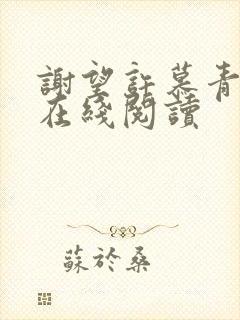 謝望許慕青
在綫閱讀
蘇於桑